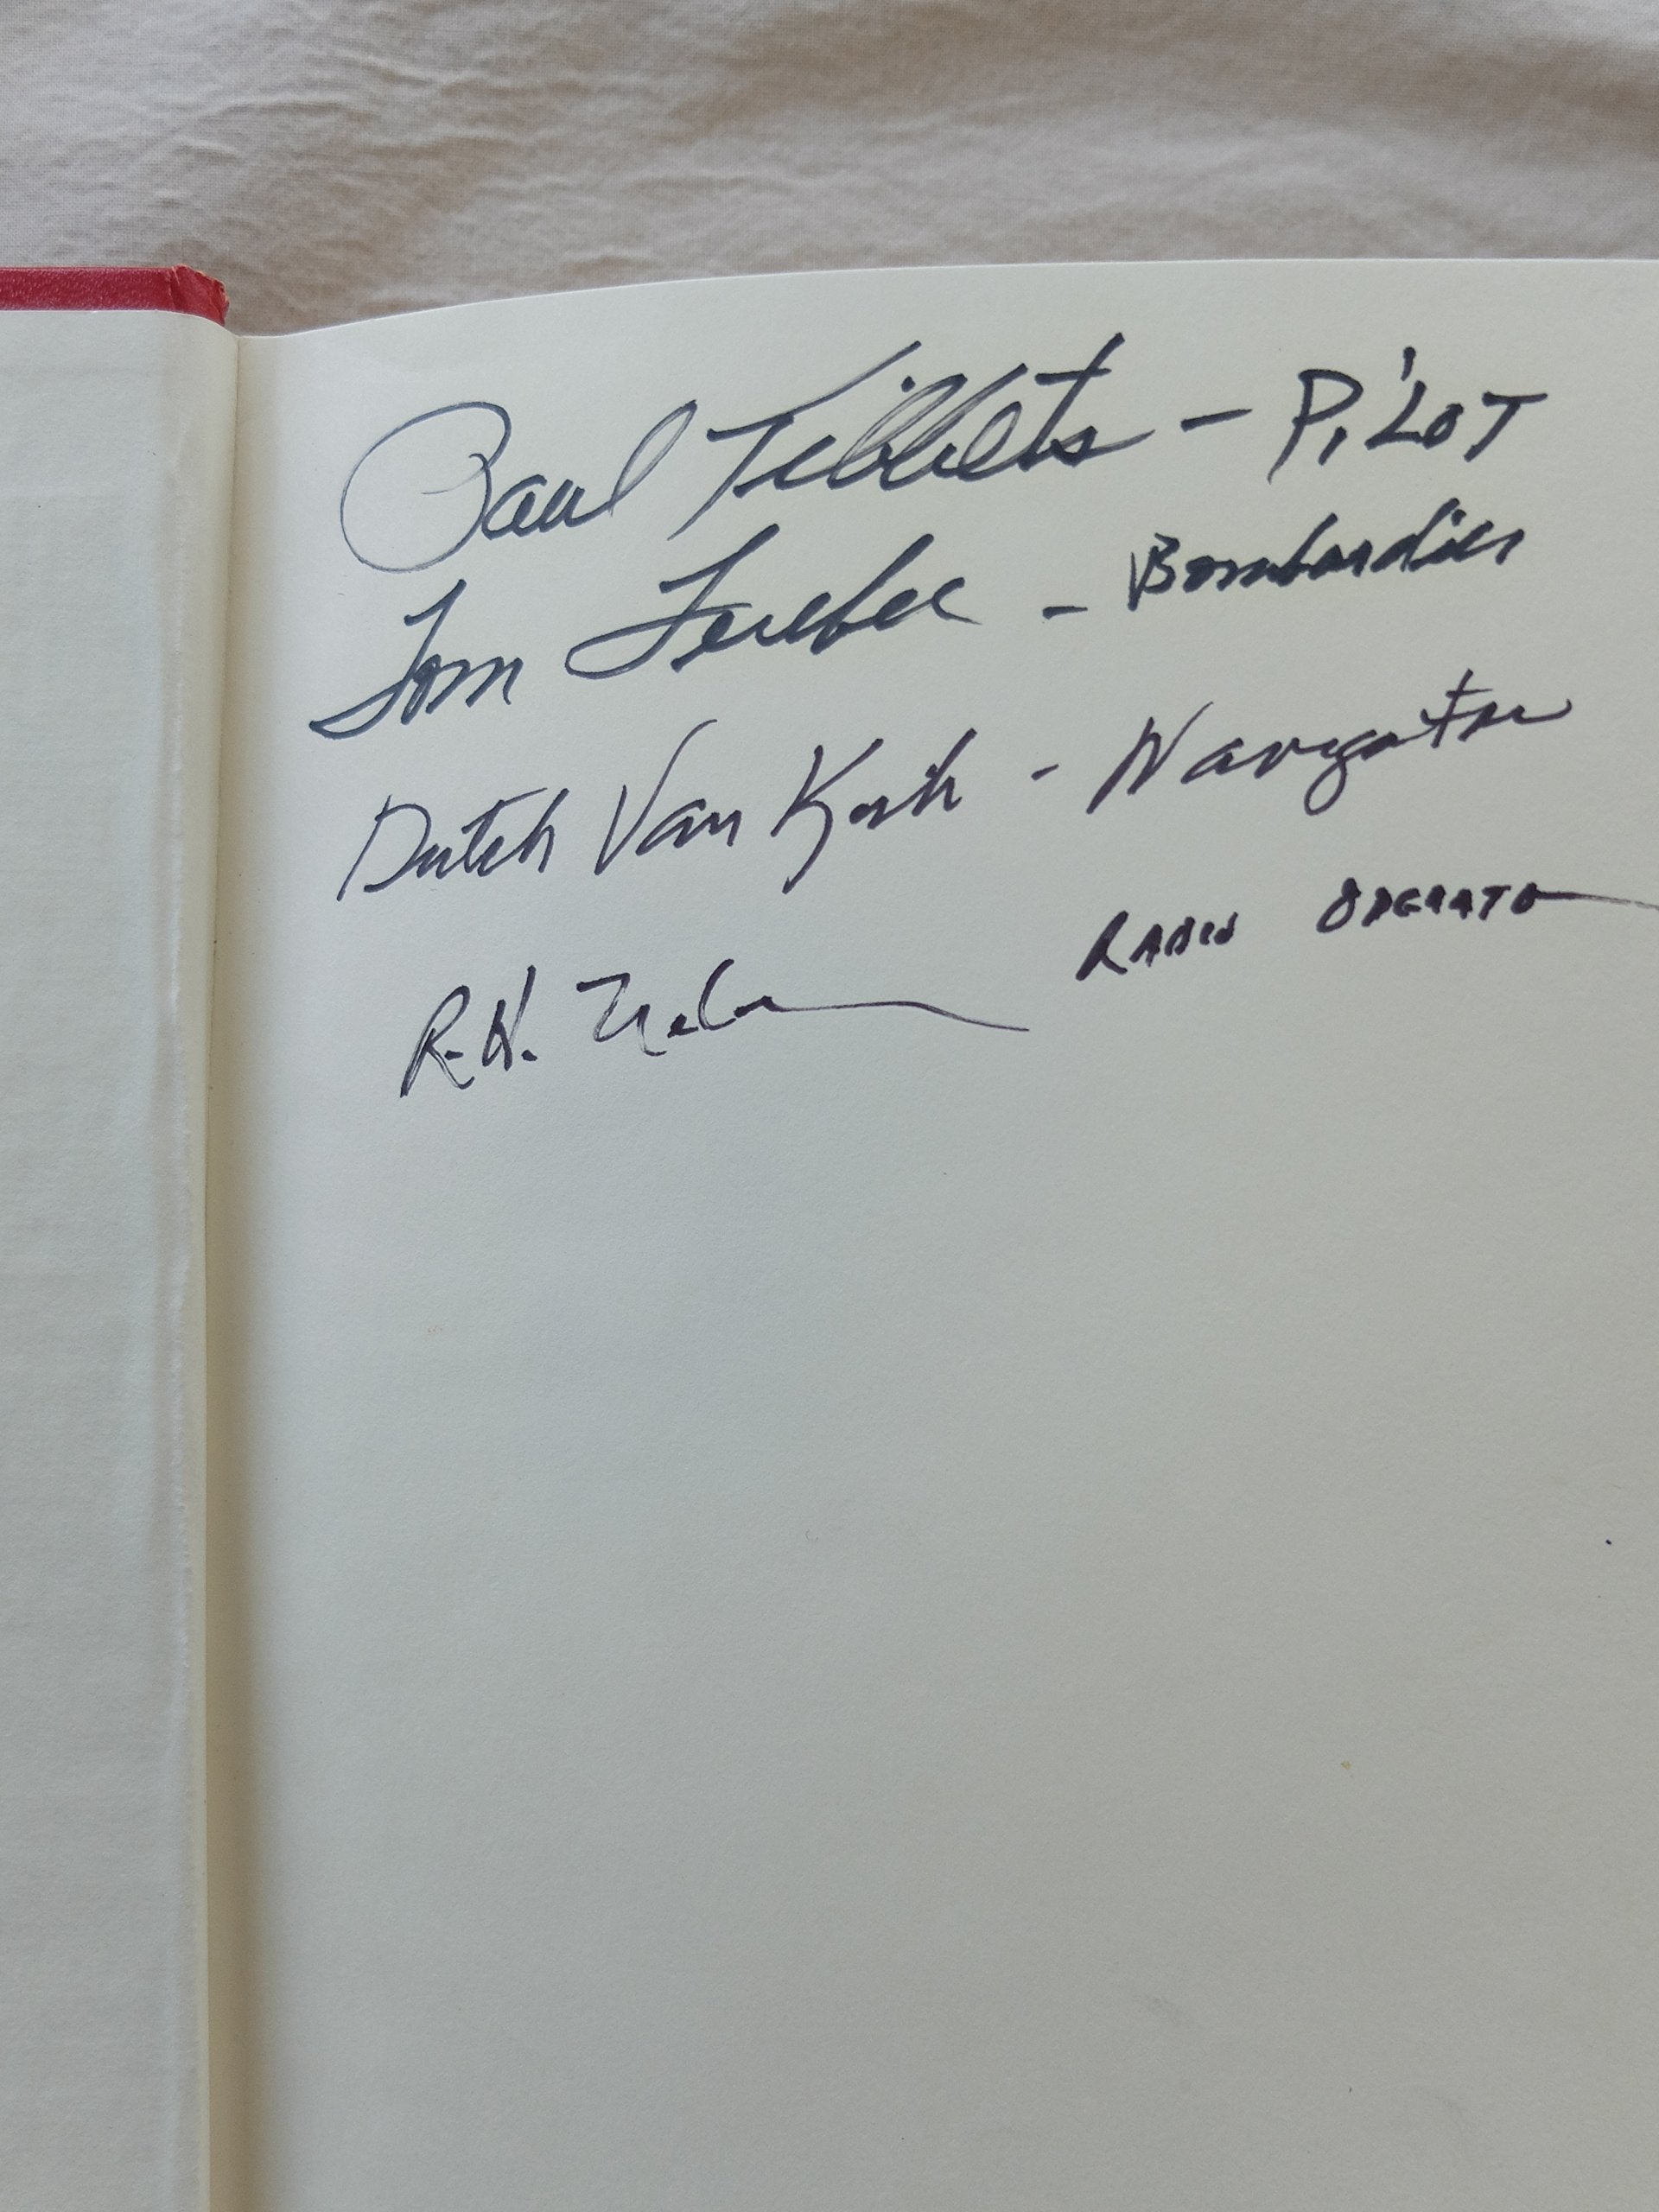 Paul Tibbets - PILOT
Tom Ferebee - Bombardier
Dutch Van Kirk - Navigator
R.H. Nelson RADIO OPERATOR